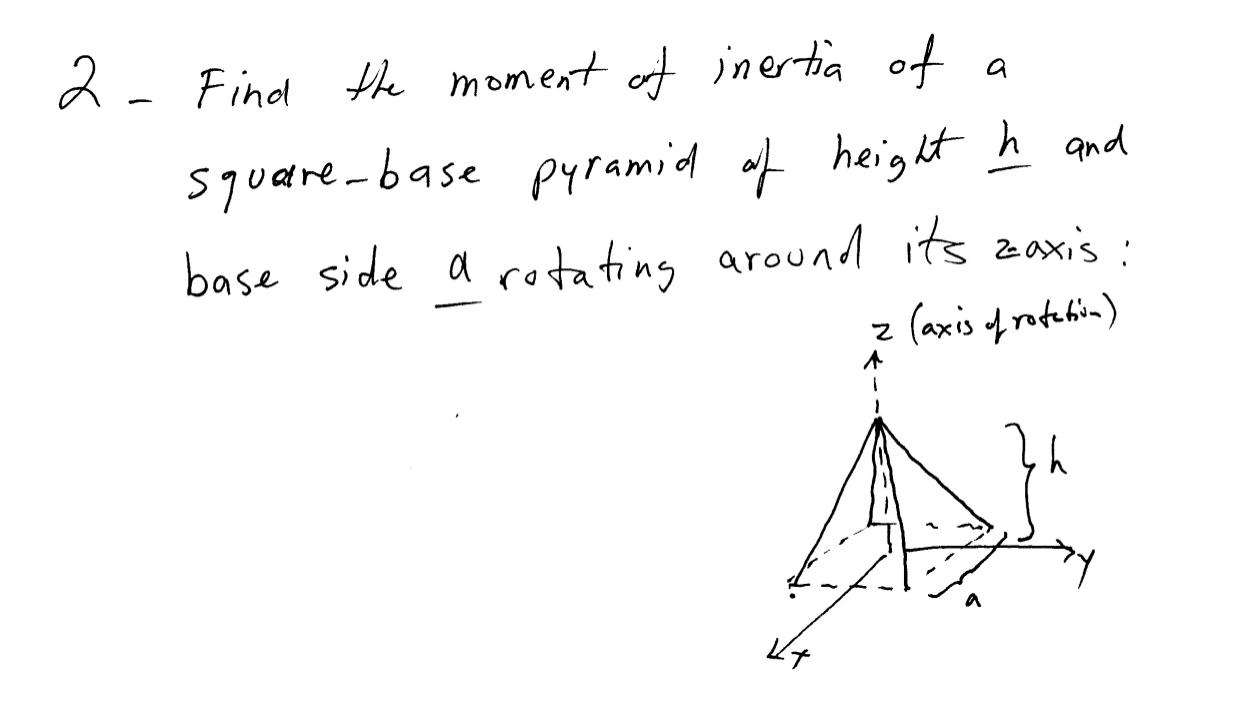 2 - Find the moment of inertia of a
square-base pyramid of height h and
base side a rotating around its z-axis :
z (axis of rotation)
h
y
a
x